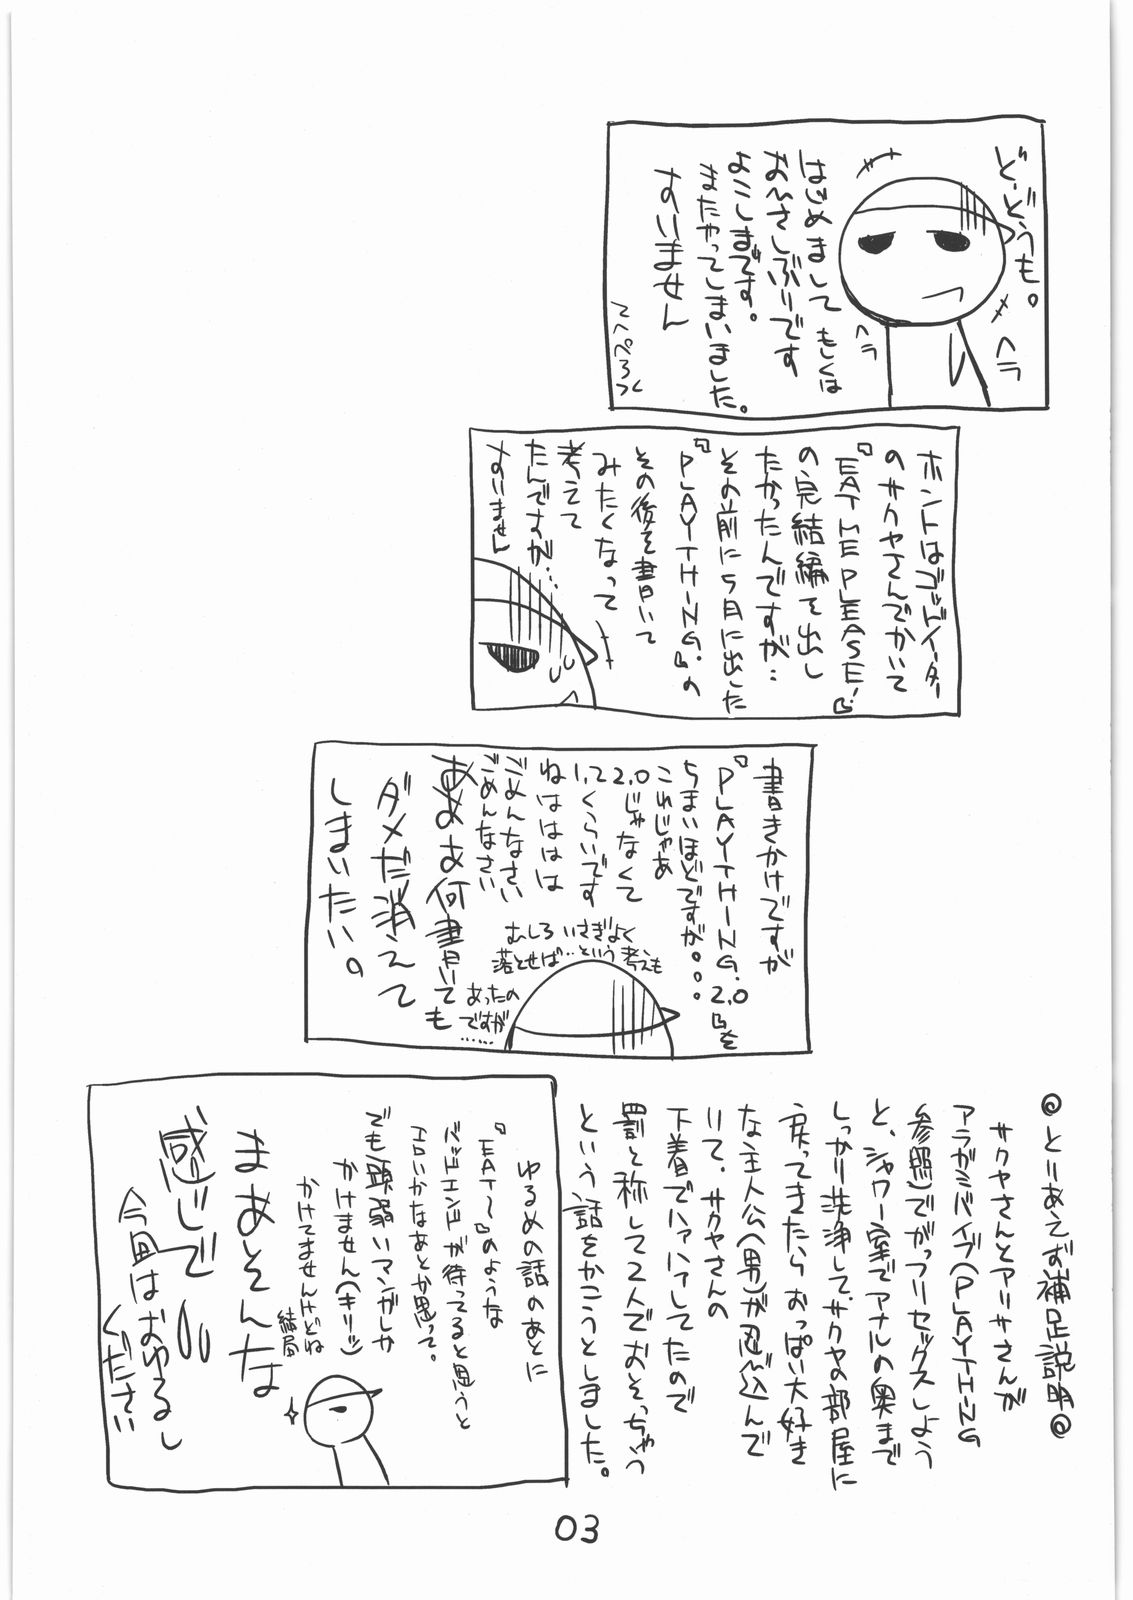 ど、どうも。
ヘラ
ヘラ
はじめまして もしくは
おひさしぶりです
よこしまです。
またやってしまいました。
すいません
ホントはゴッドイーター
のサクヤさんでかいて
『EAT ME PLEASE!』
の完結編を出し
たかったんですが…
その前に5月に出した
『PLAYTHING.』の
その後を書いて
みたくなって
考えて
たんですが…
すいません
書きかけですが
『PLAYTHING.2.0』を
うすいほどですが。。。
これじゃあ
2.0じゃなくて
1.2くらいです
ねはははは
ごめんなさい
ごめんなさい
あああ何書いても
ダメだ消えて
しまいたい。
むしろ いさぎよく
落とせば…という 考えも
あったの
ですが
……
◎とりあえず補足説明◎
サクヤさんとアリサさんが
アラガミバイブ(PLAYTHING
参照)でがっつりセックスしよう
と、シャワー室でアナルの奥まで
しっかり洗浄して、サクヤの部屋に
戻ってきたら おっぱい大好き
な主人公(男)が忍び込んで
いて、サクヤさんの
下着でハァハァしてたので
罰と称して2人でおそっちゃう
という話をかこうとしました。
ゆるめの話のあとに
『EAT〜』のような
バッドエンドが待ってると思うと
エロいかなあとか思って。
でも頭弱いマンガしか
かけません(キリッ)
かけてませんけどね
結局
まあそんな
感じで
今回はおゆるし
ください
03